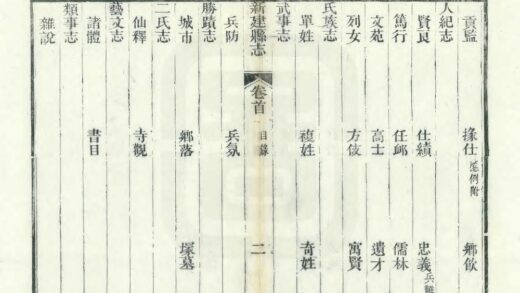 貢監 掾仕 恩例附 鄉飲
人紀志
賢良 仕績 忠義
篤行 任卹 儒林
文苑 高士 遺才
列女 方伎 寓賢
氏族志
單姓 複姓 奇姓
武事志
新建縣志 卷首 目錄 二
兵防 兵氛
勝蹟志
城市 鄉落 塚墓
二氏志
仙釋 寺觀
藝文志
諸體 書目
類事志
雜說